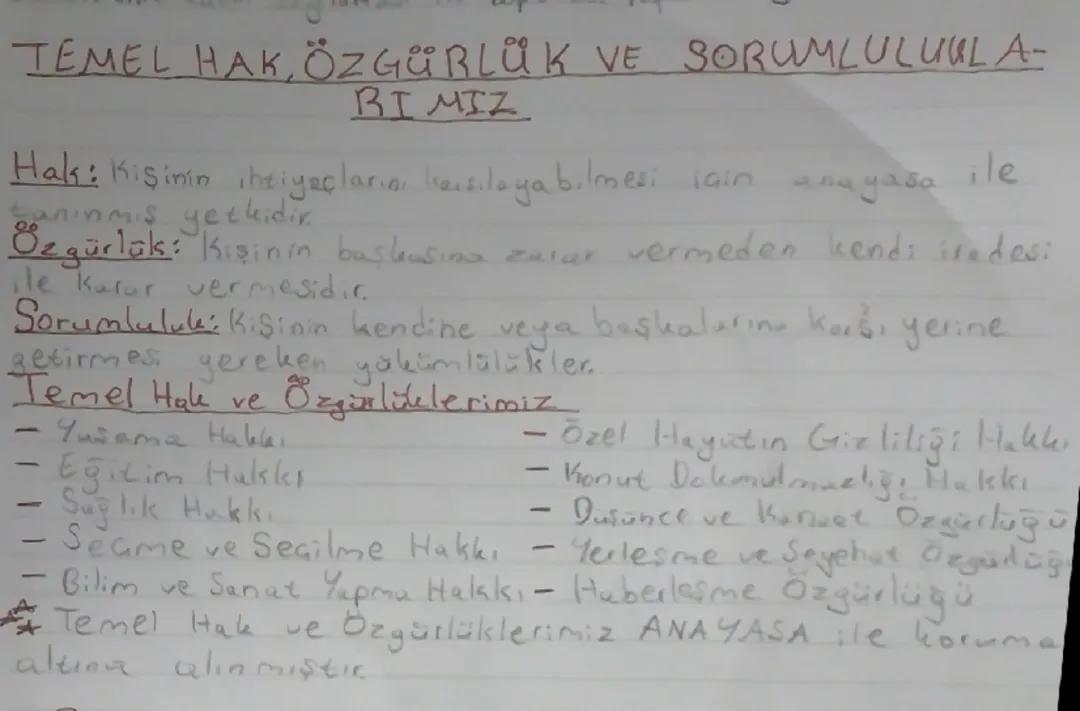 TEMEL HAK, ÖZGÜRLÜK VE SORUMLULUKLA-
RIMIZ
Hak: Kişinin ihtiyaçlarını karşılayabilmesi için anayasa ile
tanınmış yetkidir.
Özgürlük: Kişinin başkasına zarar vermeden kendi iradesi
ile karar vermesidir.
Sorumluluk: Kişinin kendine veya başkalarına karşı yerine
getirmesi gereken yükümlülükler.
Temel Hak ve Özgürlüklerimiz
- Yaşama Hakkı - Özel Hayatın Gizliliği Hakkı
- Eğitim Hakkı - Konut Dokunulmazlığı Hakkı
- Sağlık Hakkı - Düşünce ve Kanaat Özgürlüğü
- Seçme ve Seçilme Hakkı - Yerleşme ve Seyehat Özgürlüğü
- Bilim ve Sanat Yapma Hakkı - Haberleşme Özgürlüğü
Temel Hak ve Özgürlüklerimiz ANAYASA ile koruma
altına alınmıştır.